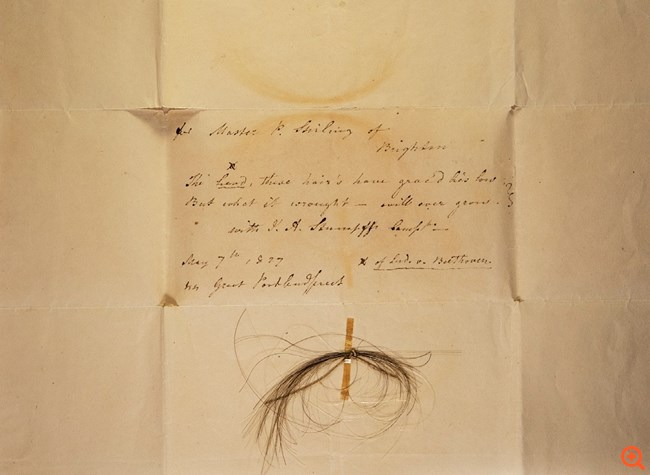 for Master P. Stirling of
Brighton
x
The head, these hair's have grac'd lies low
But what it wrought — will ever grow.
with J. A. Stumpff's Compts.—
May 7th 1827
x of Lud. v. Beethoven.
44 Great Portland street